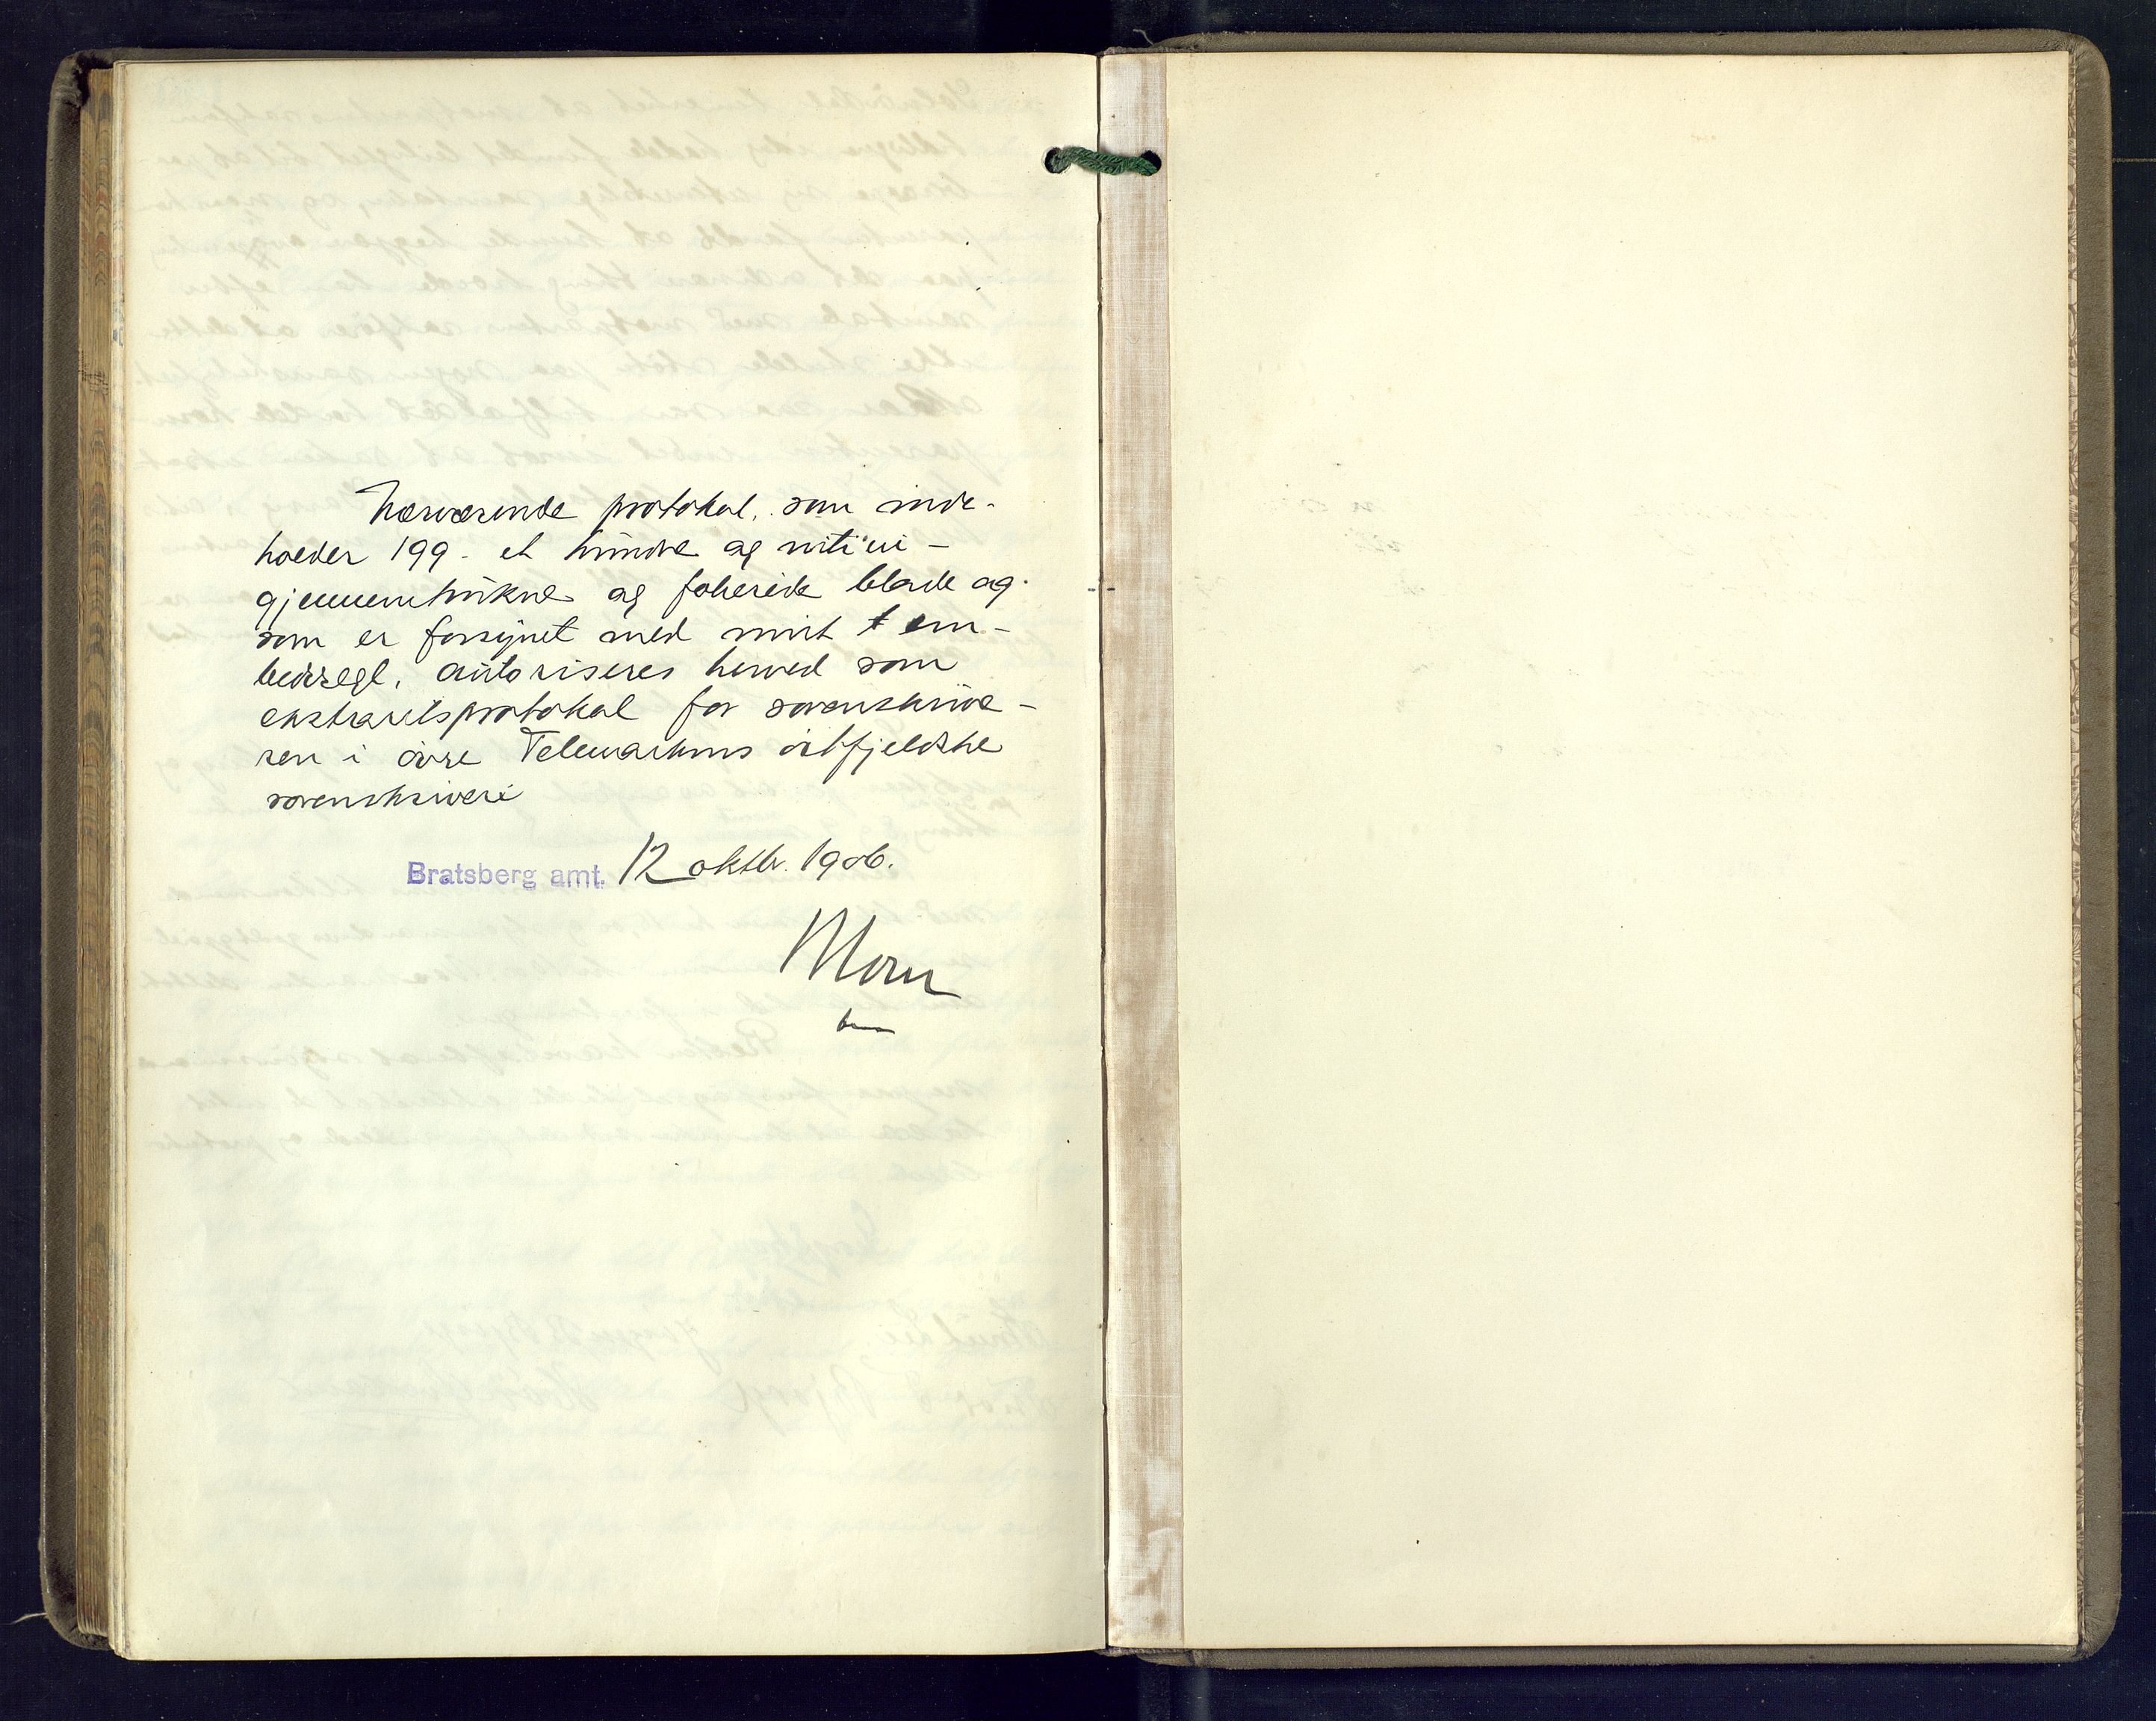 Nærværende protokol, som inde-
holder 199 - et hundre og nitini -
gjennemtrukne og folierede blade og
som er forsynet med mit em-
bedssegl, autoriseres herved som
ekstraretsprotokol for sorenskrive-
ren i övre Telemarkens östfjeldske
sorenskriveri
Bratsberg amt. 12 oktbr. 1906.